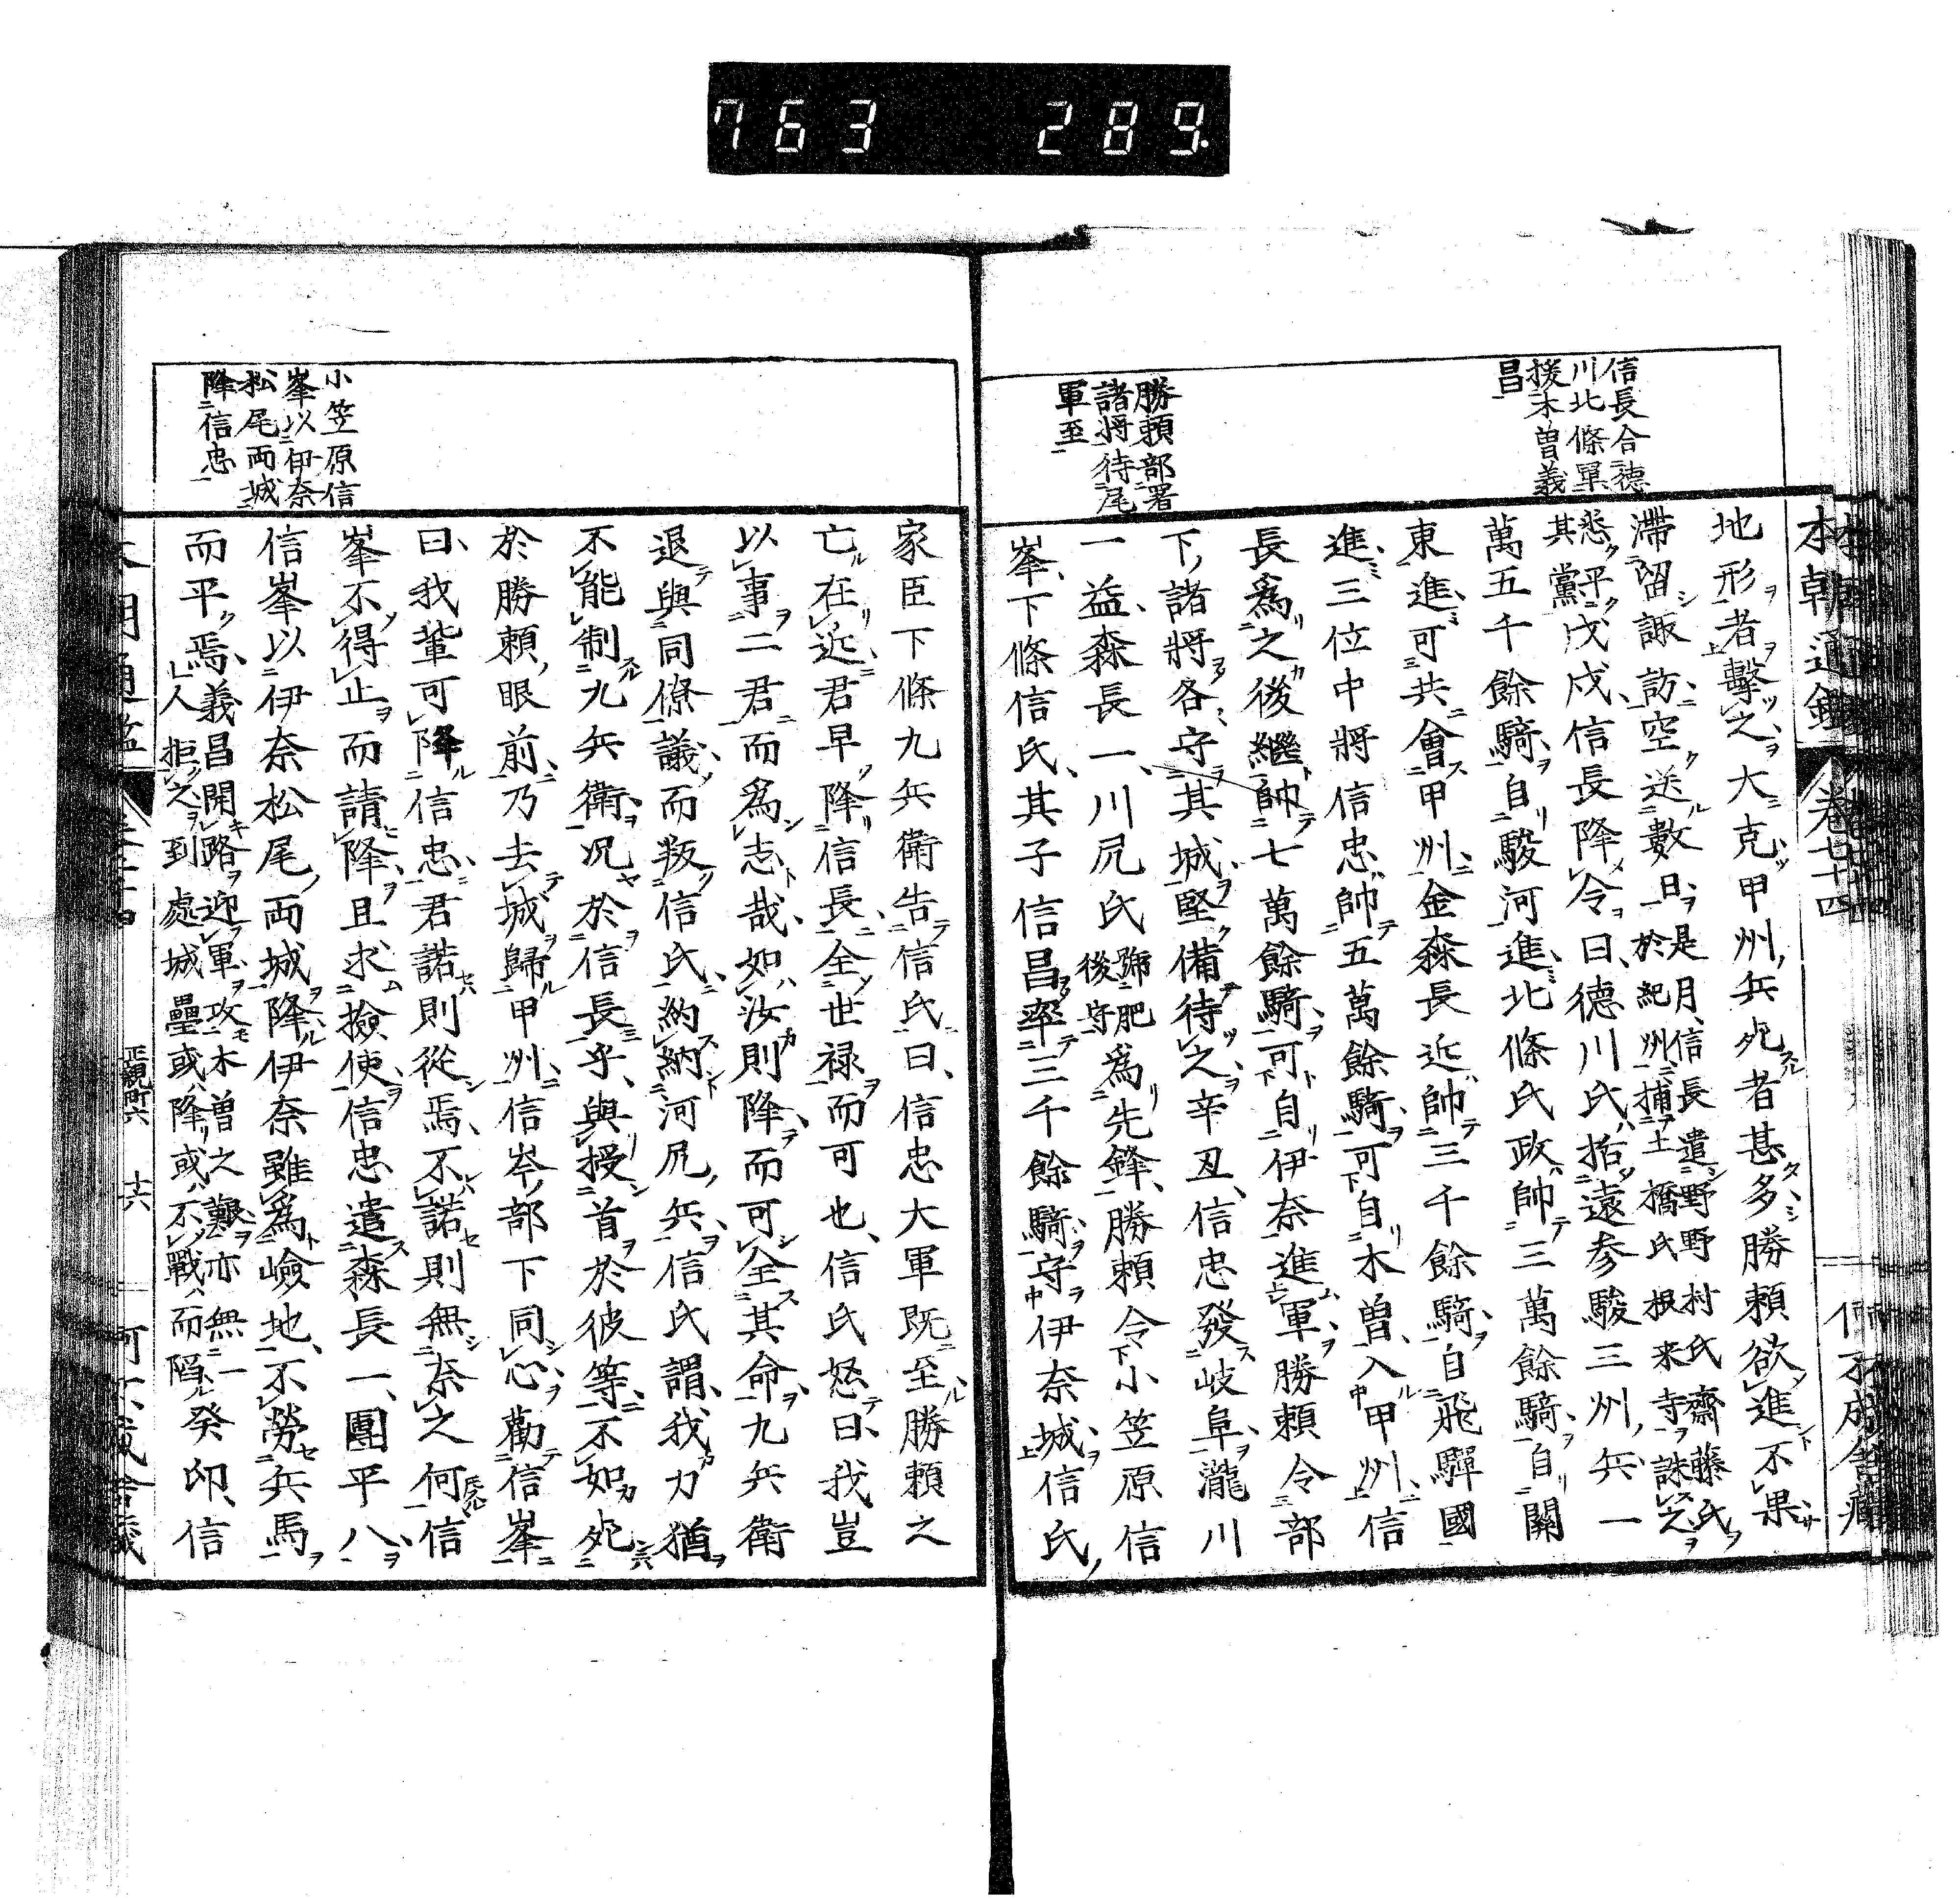 763 289.
本朝通鑑 卷七十四
信長合德
川北條軍
援木曽義
昌
勝頼部署
諸將待尾
軍至
地形者擊之大克甲州兵死者甚多勝頼欲進不果
滯留諏訪空送數日是月信長遣野野村氏齋藤氏
於紀州捕土橋氏根来寺誅之
悉平
其黨戊戌信長降令曰德川氏括遠参駿三州兵一
萬五千餘騎自駿河進北條氏政帥三萬餘騎自關
東進可共會甲州金森長近帥三千餘騎自飛驒國
進三位中將信忠帥五萬餘騎可自木曽入甲州信
長爲之後繼帥七萬餘騎可自伊奈進軍勝頼令部
下諸將各守其城堅備待之辛丑信忠發岐阜瀧川
一益森長一川尻氏號肥後守爲先鋒勝頼令小笠原信
峯下條信氏其子信昌率三千餘騎守伊奈城信氏
小笠原信
峯以伊奈
松尾両城
降信忠
家臣下條九兵衛告信氏曰信忠大軍既至勝頼之
亡在近君早降信長全世禄而可也信氏怒曰我豈
以事二君而爲志哉如汝則降而可全其命九兵衛
退與同僚議而叛信氏納河尻兵信氏謂我力猶
不能制九兵衛况於信長乎與授首於彼等不如死
於勝頼眼前乃去城歸甲州信岑部下同心勸信峯
曰我輩可降信忠君諾則從焉不諾則無奈之何信
峯不得止而請降且求撿使信忠遣森長一團平八
信峯以伊奈松尾両城降伊奈雖爲嶮地不勞兵馬
而平焉義昌開路迎軍攻木曽之艱亦無一
人拒之到處城壘或降或不戰而陷癸卯信
正親町六 十六